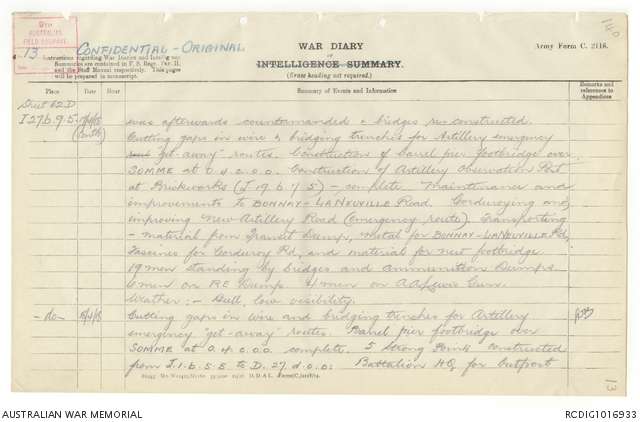 9TH
AUSTRALIAN
FIELD COMPANY
13
CONFIDENTIAL - ORIGINAL
140
WAR DIARY
or
INTELLIGENCE SUMMARY.
(Erase heading not required.)
Army Form C. 2118.
Instructions regarding War Diaries and Intelligence
Summaries are contained in F. S. Regs., Part II.
and the Staff Manual respectively. Title pages
will be prepared in manuscript.
Place
Date
Hour
Summary of Events and Information
Remarks and
references to
Appendices
Sheet 62D
I27.b.9.5.
(Contd)
was afterwards countermanded & bridges reconstructed.
Cutting gaps in wire & bridging trenches for Artillery emergency
"get-away" routes. Construction of barrel pier footbridge over
SOMME at O.4.c.0.0. Construction of Artillery Observation Post
at Brickworks (J.19.b.7.5) - complete. Maintenance and
improvements to BONNAY-LANEUVILLE Road. Corduroying and
improving New Artillery Road (emergency route). Transporting
- material from Transit Dump, metal for BONNAY-LANEUVILLE Rd,
Fascines for Corduroy Rd, and material for new footbridge.
19 men standing by bridges and Ammunition Dumps.
6 men on RE Dumps. 4 men on AA Lewis Gun.
Weather :- Dull, low visibility.
- do -
Cutting gaps in wire and bridging trenches for Artillery
emergency "get-away" routes. Barrel pier footbridge over
SOMME at O.4.c.0.0. complete. 5 Strong Points constructed
from J.1.b.5.8 to D.27.d.0.0. Battalion HQ for Outpost
13
AUSTRALIAN WAR MEMORIAL
RCDIG1016933